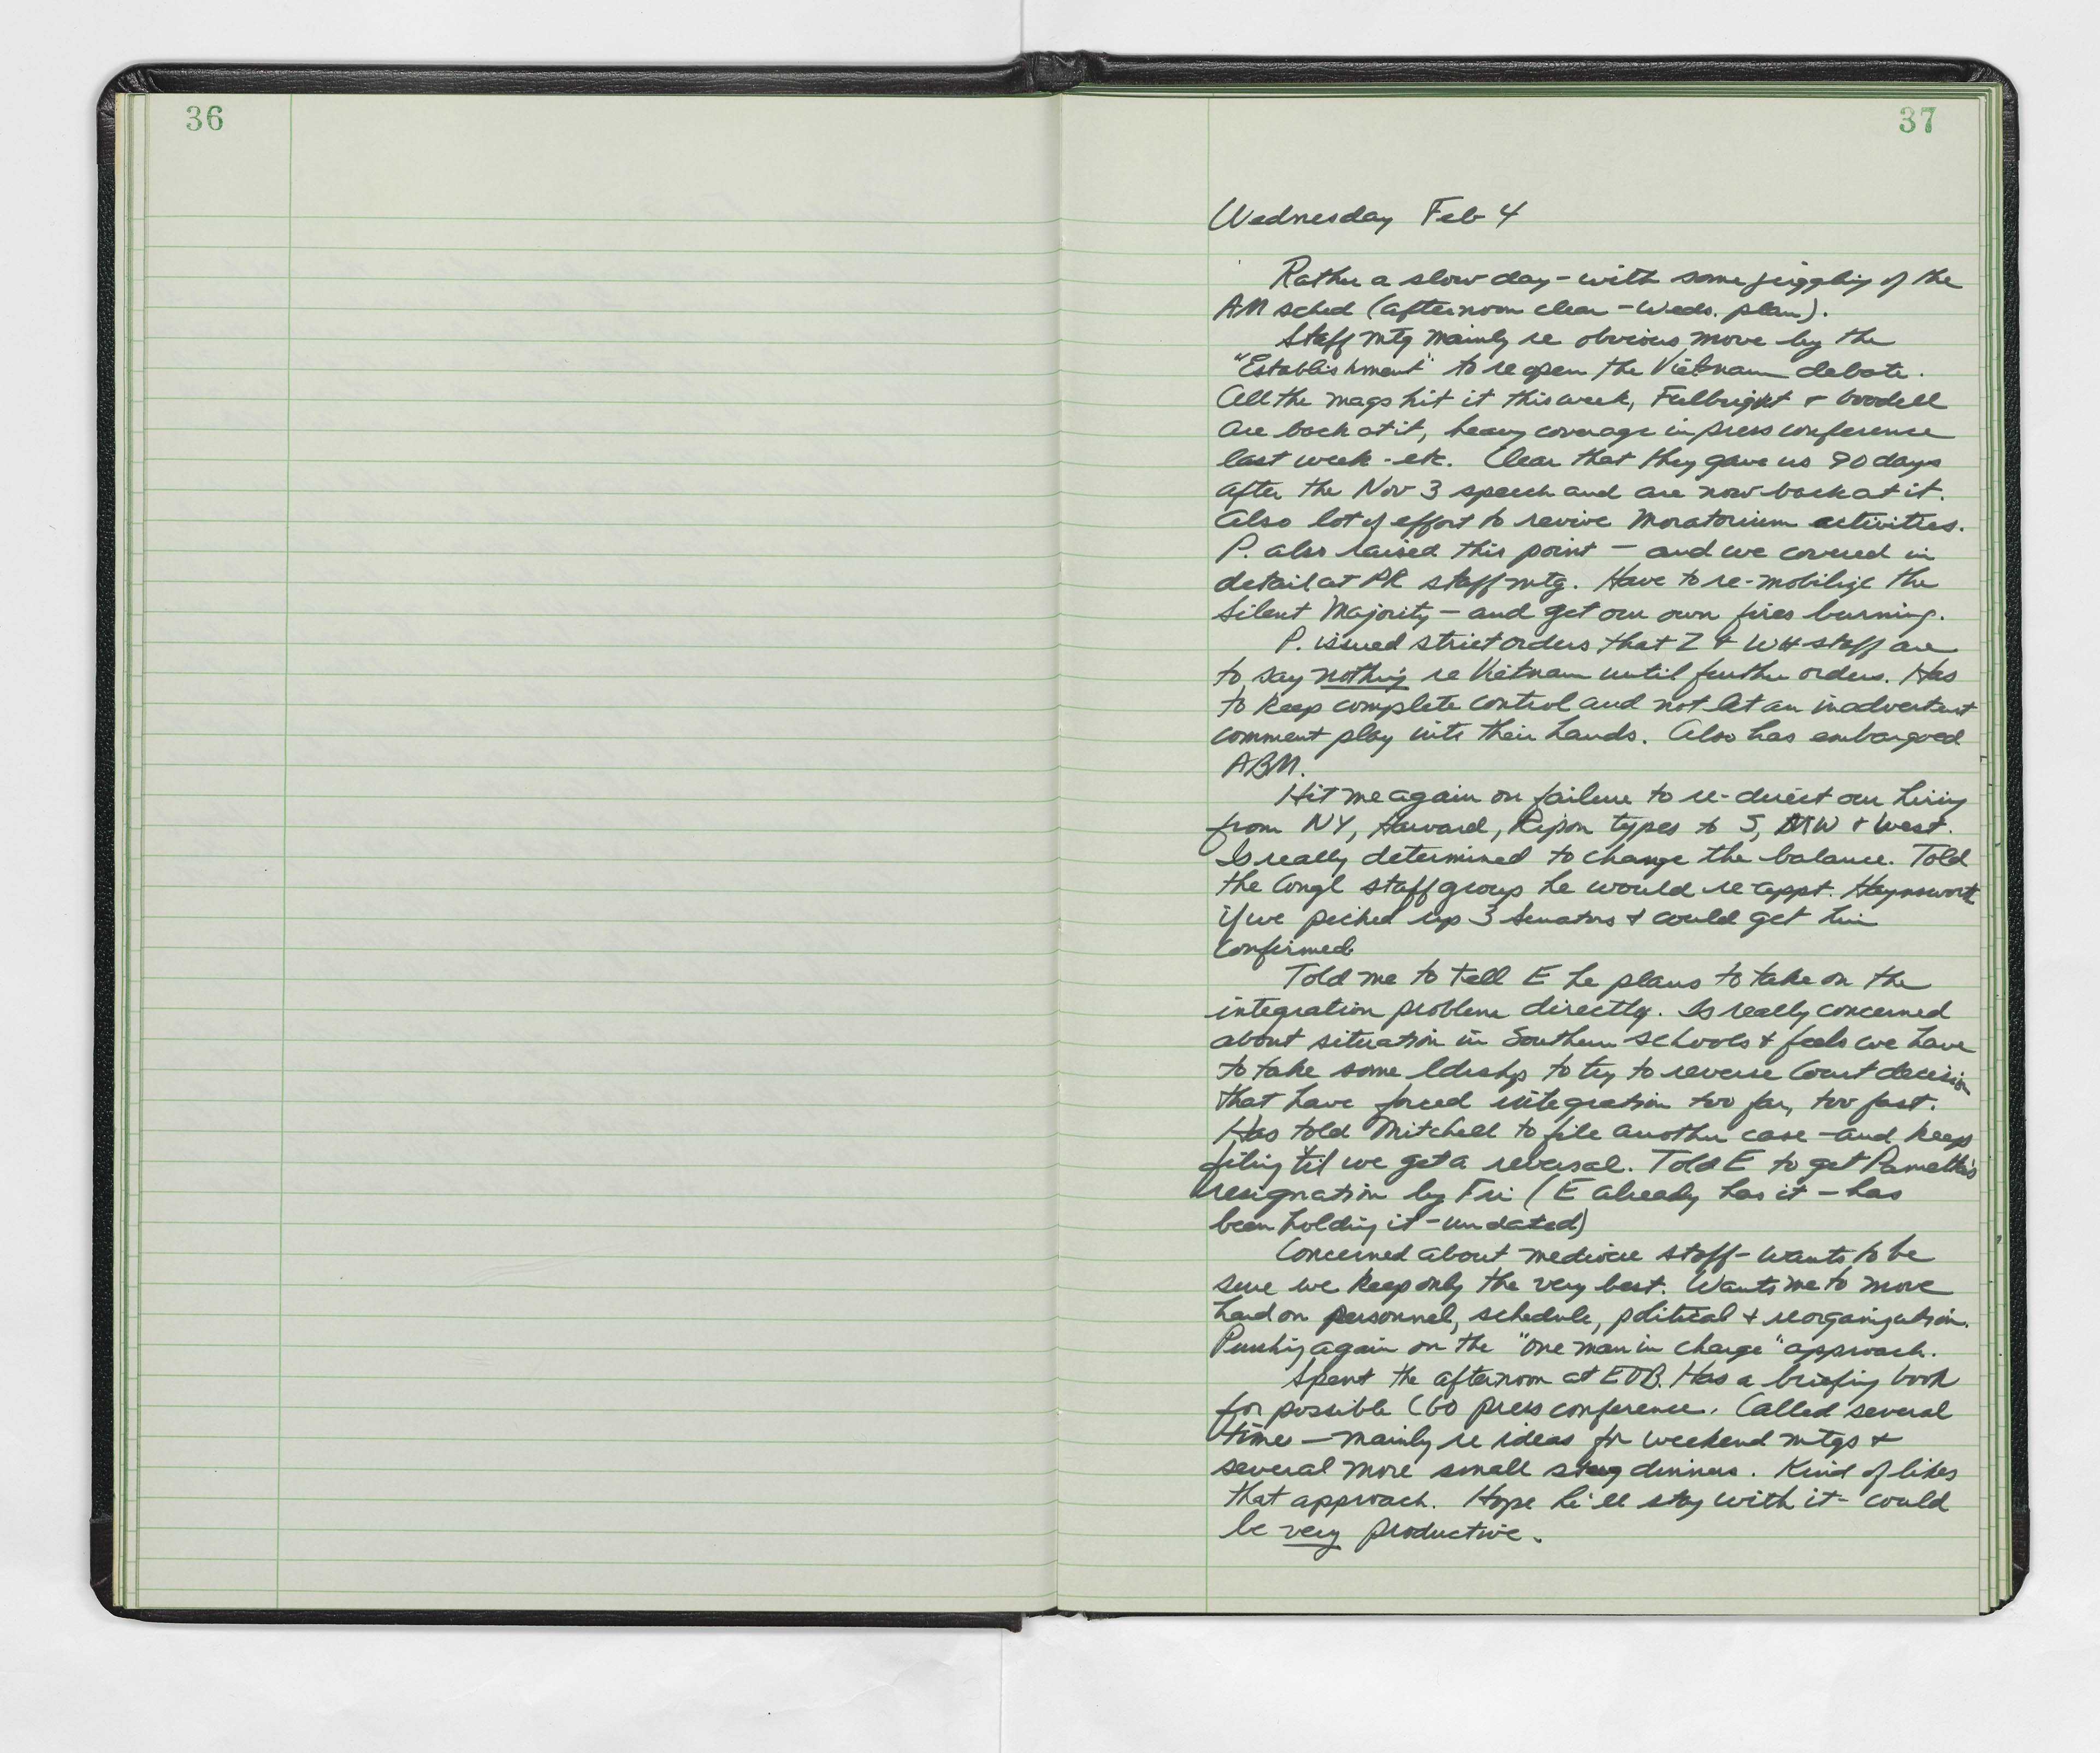 36
37
Wednesday Feb 4
Rather a slow day - with some jiggling of the
AM sched (afternoon clear - Weds. plan).
Staff mtg mainly re obvious move by the
"Establishment" to reopen the Vietnam debate.
All the mags hit it this week, Fulbright & Goodell
are back at it, heavy coverage in press conference
last week - etc. Clear that they gave us 90 days
after the Nov 3 speech and are now back at it.
Also lot of effort to revive Moratorium activities.
P. also raised this point - and we covered in
detail at PR staff mtg. Have to re-mobilize the
Silent Majority - and get our own fires burning.
P. issued strict orders that Z & WH staff are
to say nothing re Vietnam until further orders. Has
to keep complete control and not let an inadvertent
comment play into their hands. Also has embargoed
ABM.
Hit me again on failure to re-direct our hiring
from NY, Harvard, Ripon types to S, MW & West.
Is really determined to change the balance. Told
the Congl staff group he would re-appt. Haynsworth
if we picked up 3 Senators & could get him
confirmed.
Told me to tell E he plans to take on the
integration problem directly. Is really concerned
about situation in Southern schools & feels we have
to take some ldrshp to try to reverse Court decision
that have forced integration too far, too fast.
Has told Mitchell to file another case - and keep
filing til we get a reversal. Told E to get Panetta's
resignation by Fri (E already has it - has
been holding it - undated)
Concerned about mediocre staff - wants to be
sure we keep only the very best. Wants me to move
hard on personnel, schedule, political & reorganization.
Pushing again on the "one man in charge" approach.
Spent the afternoon at EOB. Has a briefing book
for possible CGO press conference. Called several
times - mainly re ideas for weekend mtgs &
several more small stag dinners. Kind of likes
that approach. Hope he'll stay with it - could
be very productive.